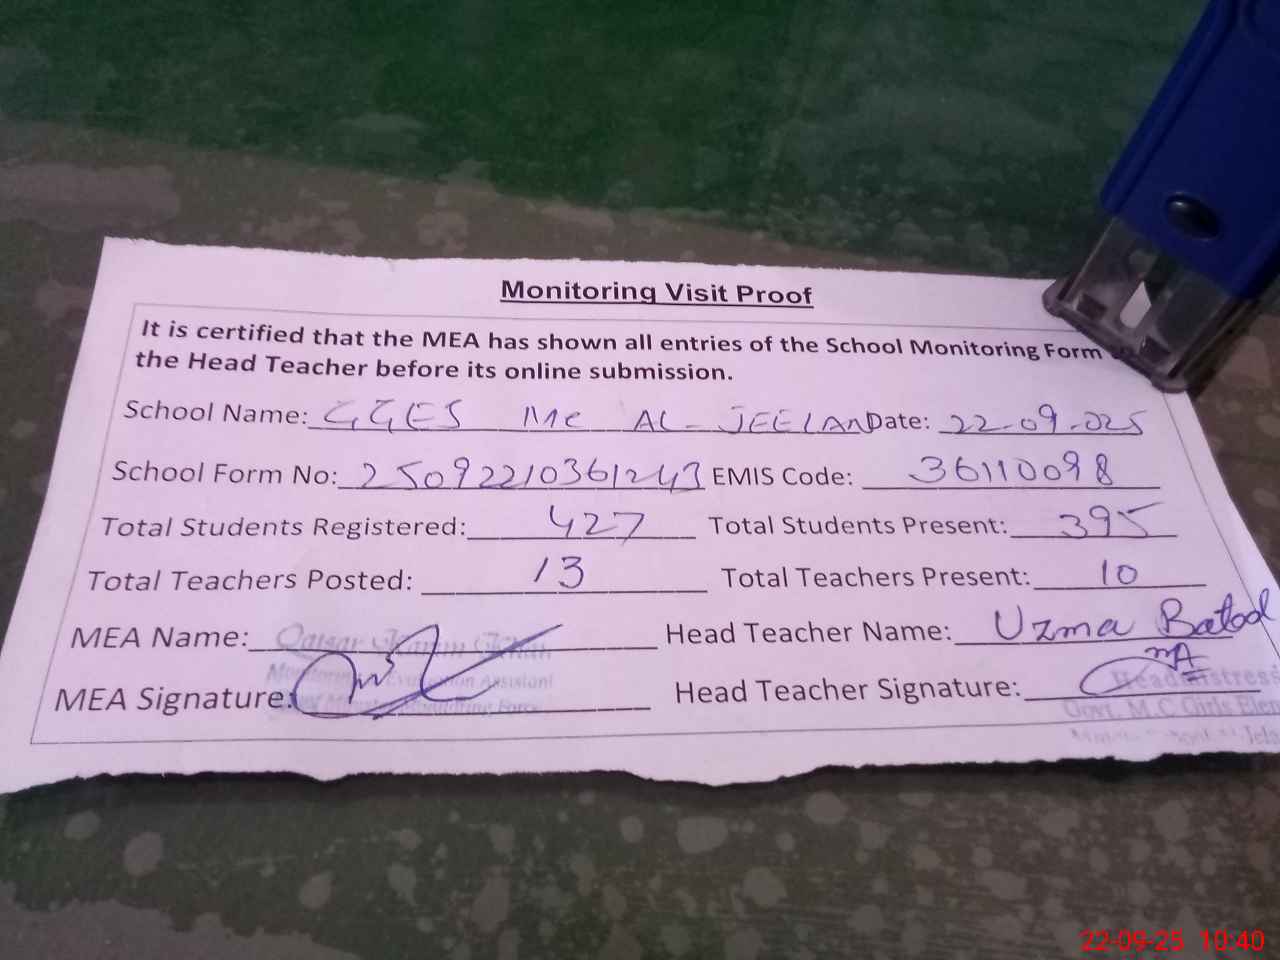 Monitoring Visit Proof
It is certified that the MEA has shown all entries of the School Monitoring Form
the Head Teacher before its online submission.
School Name: GGES MC AL-JEELAN Date: 22-09-025
School Form No: 25092210361243 EMIS Code: 36110098
Total Students Registered: 427 Total Students Present: 395
Total Teachers Posted: 13 Total Teachers Present: 10
MEA Name: Qaisar Head Teacher Name: Uzma Batool
Assistant
MEA Signature: Head Teacher Signature:
Headmistress
Govt. M.C Girls Elem
22-09-25 10:40